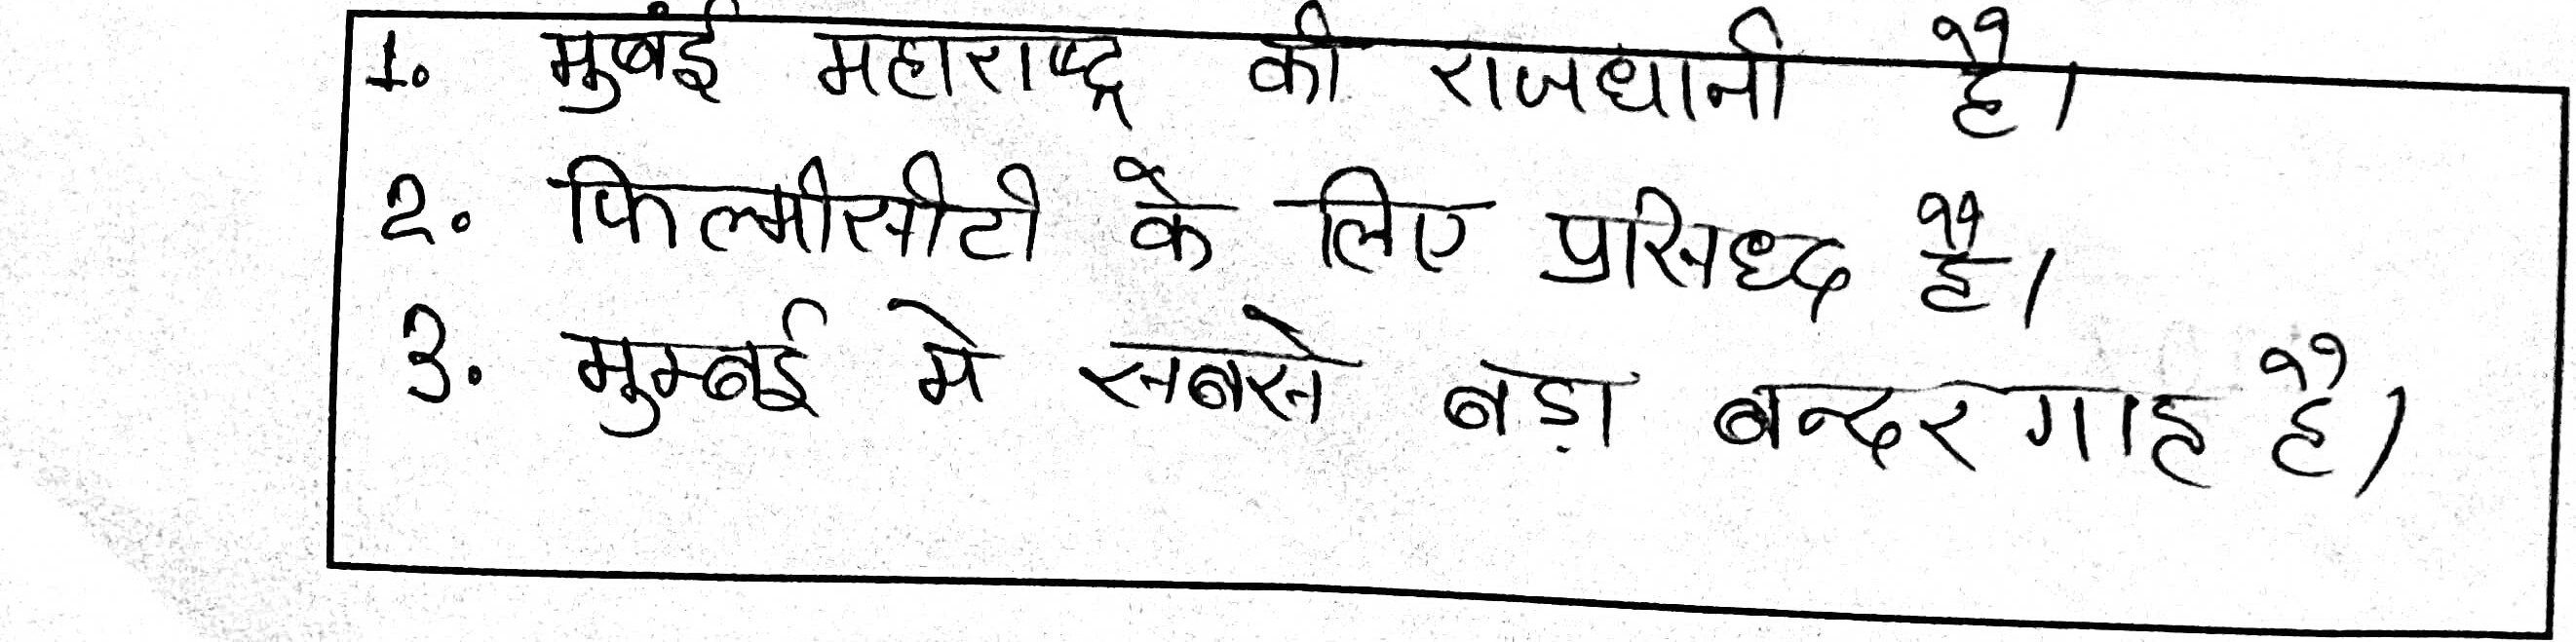 1. मुबंई महाराष्ट्र की राजधानी है।
2. फिल्मीसीटी के लिए प्रसिध्द है।
3. मुम्बई मे सबसे बड़ा बन्दरगाह है।